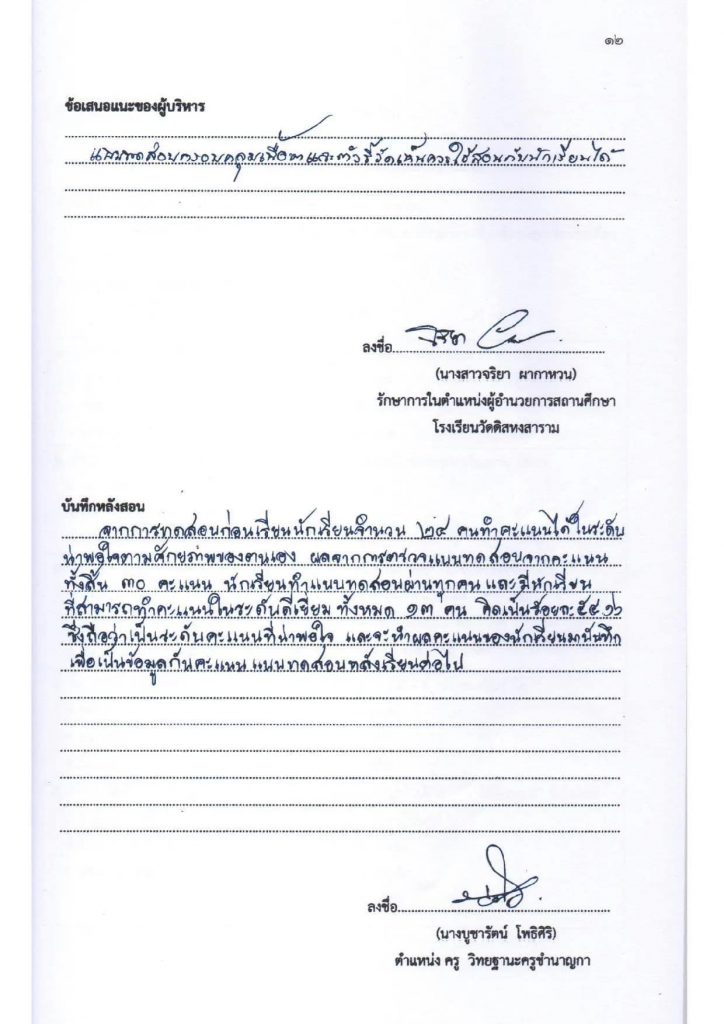 ๑๒
ข้อเสนอแนะของผู้บริหาร
แบบทดสอบครอบคลุมเนื้อหาและตัวชี้วัดเห็นควรใช้สอนกับนักเรียนได้
ลงชื่อ
(นางสาวจริยา ผากาหวน)
รักษาการในตำแหน่งผู้อำนวยการสถานศึกษา
โรงเรียนวัดดิสหงสาราม
บันทึกหลังสอน
จากการทดสอบก่อนเรียนนักเรียนจำนวน ๒๔ คนทำคะแนนได้ในระดับ
น่าพอใจตามศักยภาพของตนเอง ผลจากการตรวจแบบทดสอบจากคะแนน
ทั้งสิ้น ๓๐ คะแนน นักเรียนทำแบบทดสอบผ่านทุกคน และมีนักเรียน
ที่สามารถทำคะแนนในระดับดีเยี่ยม ทั้งหมด ๑๓ คน คิดเป็นร้อยละ ๕๔.๑๖
ซึ่งถือว่าเป็นระดับคะแนนที่น่าพอใจ และจะนำผลคะแนนของนักเรียนมาบันทึก
เพื่อเป็นข้อมูลกับคะแนน แบบทดสอบหลังเรียนต่อไป
ลงชื่อ
(นางบูชารัตน์ โพธิศิริ)
ตำแหน่ง ครู วิทยฐานะครูชำนาญกา